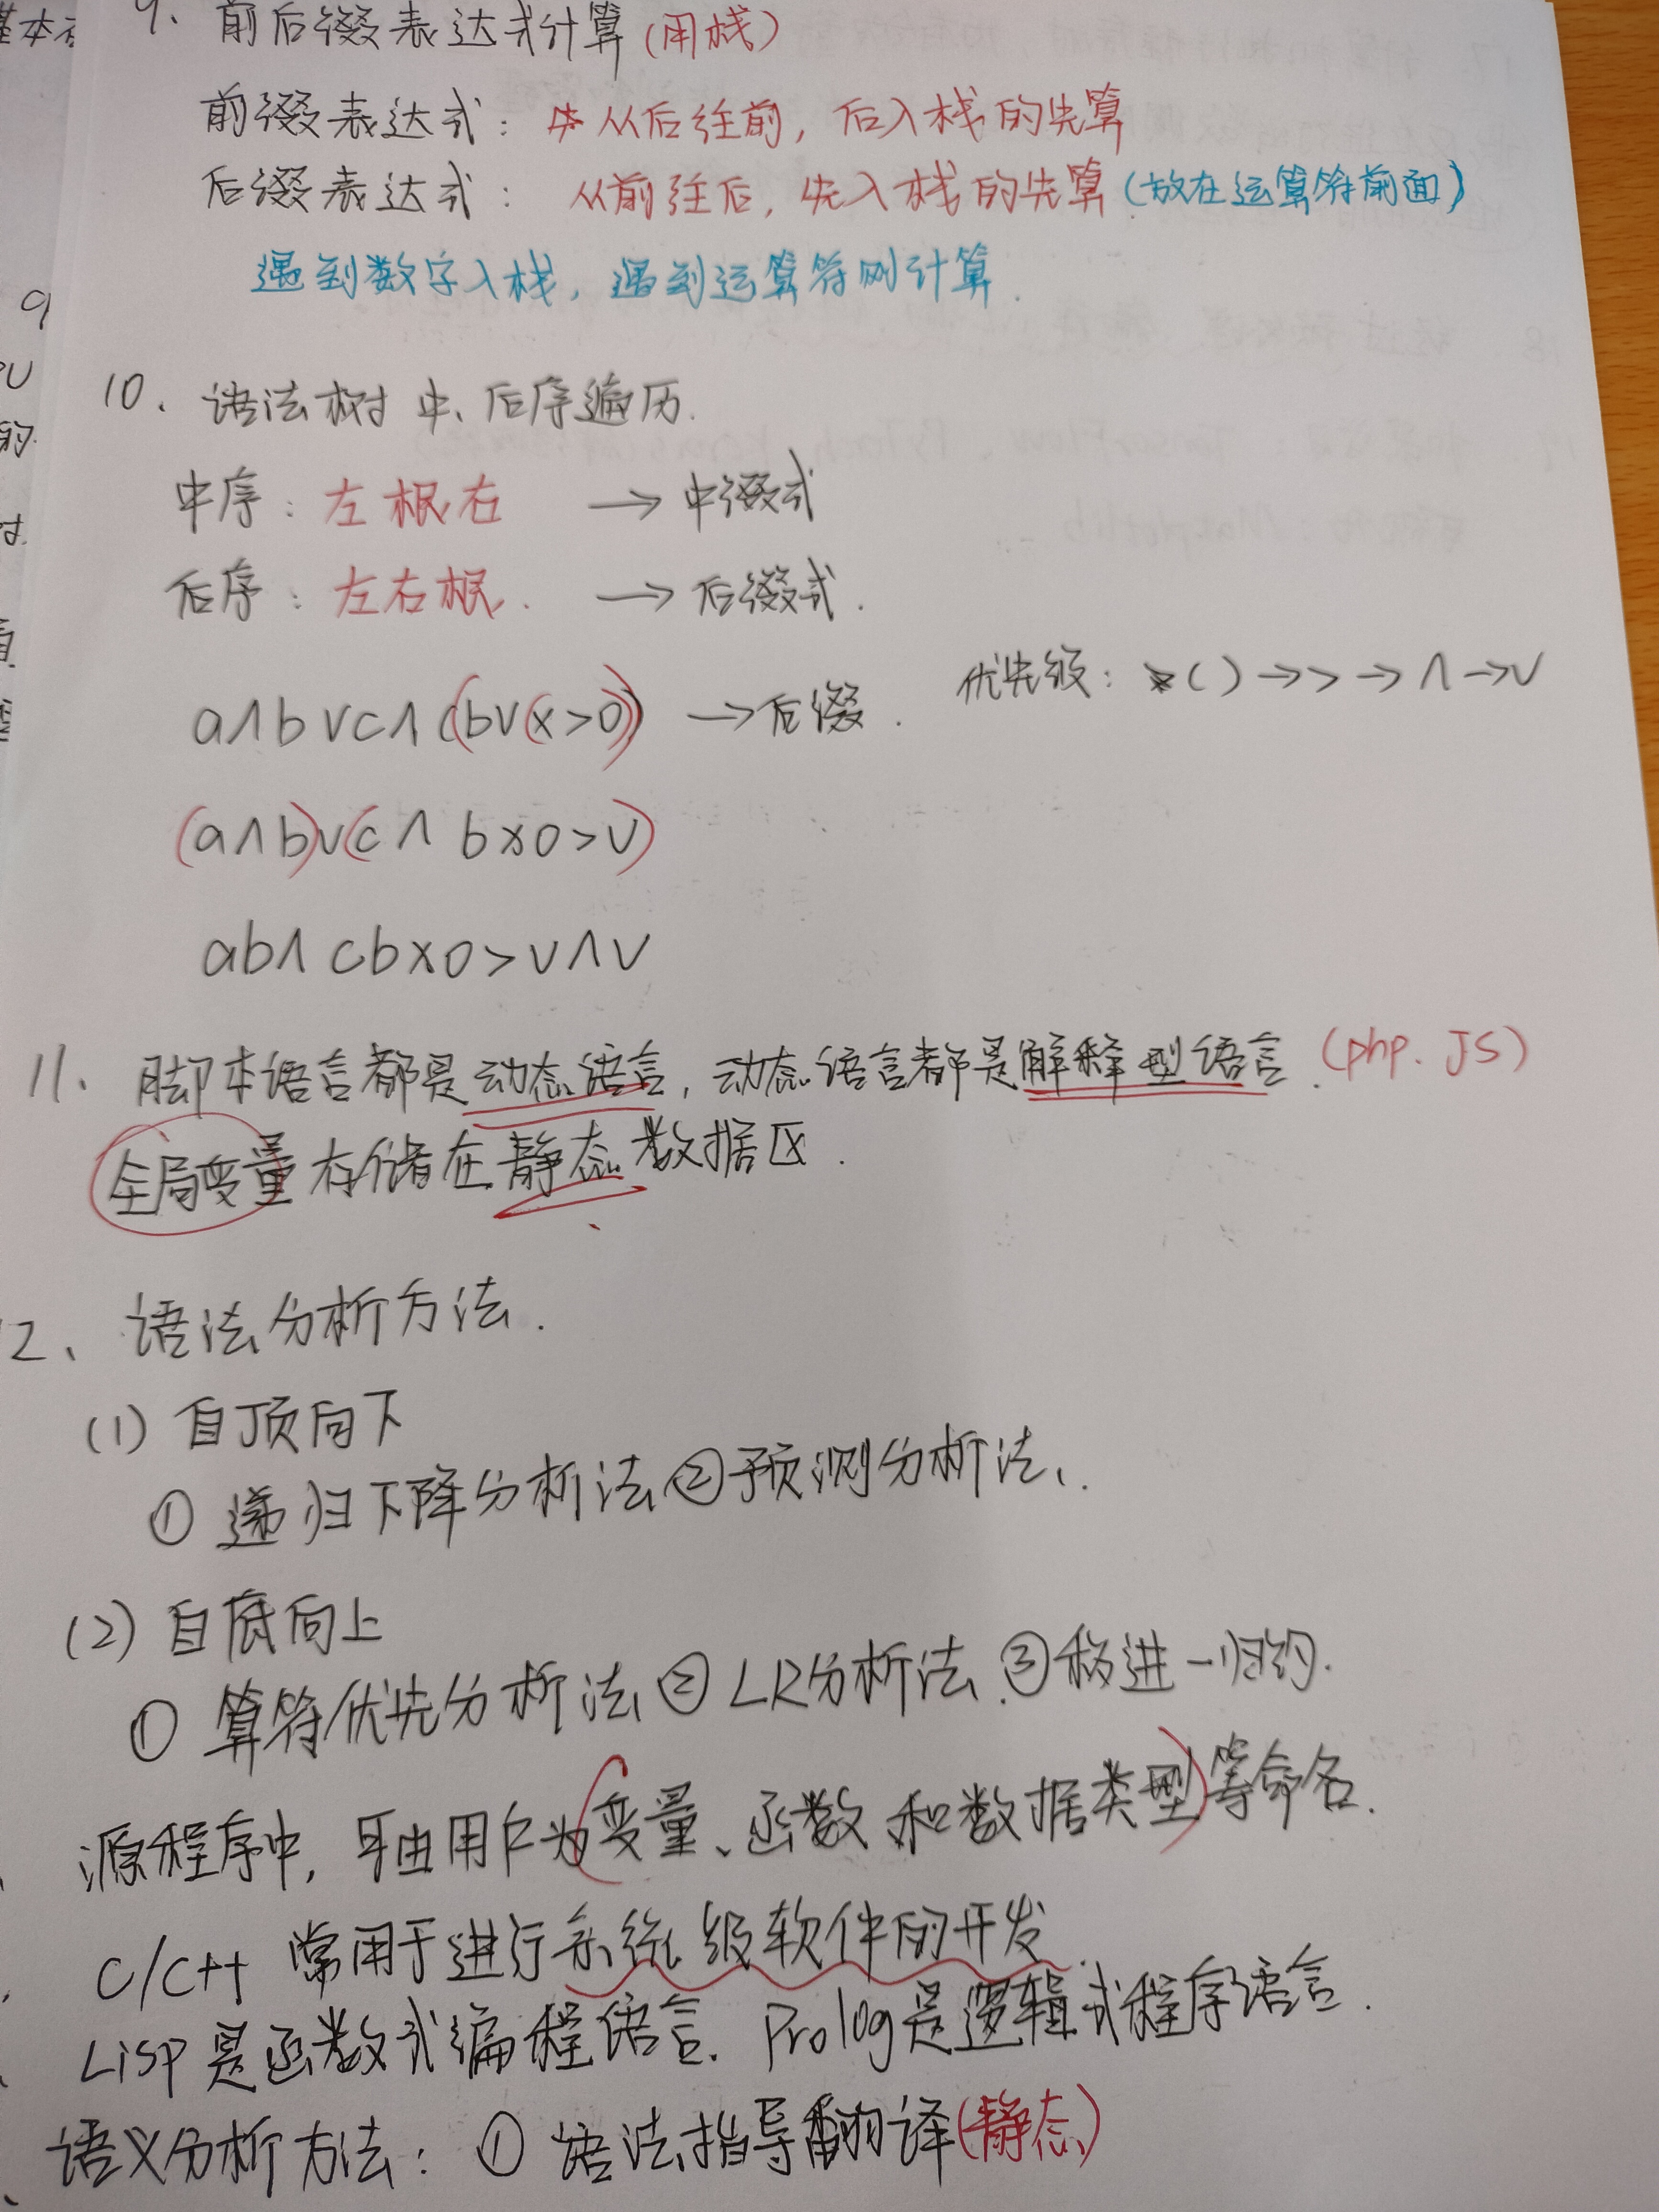 9. 前后缀表达式计算(用栈)
前缀表达式: 从后往前, 后入栈的先算
后缀表达式: 从前往后, 先入栈的先算(放在运算符前面)
遇到数字入栈, 遇到运算符则计算.
10. 语法树中、后序遍历.
中序: 左根右 → 中缀式
后序: 左右根. → 后缀式.
a∧b∨c∧(b∨(x>0)) → 后缀. 优先级: ()→>→∧→∨
(a∧b)∨(c∧ bx0>∨)
ab∧ cbx0>∨∧∨
11. 脚本语言都是动态语言, 动态语言都是解释型语言. (php. JS)
全局变量存储在静态数据区.
2、语法分析方法.
(1) 自顶向下
① 递归下降分析法 ②预测分析法、
(2) 自底向上
① 算符优先分析法 ② LR分析法 ③移进-归约.
源程序中, 可由用户为变量、函数和数据类型等命名.
C/C++ 常用于进行系统级软件的开发
Lisp是函数式编程语言. Prolog是逻辑式程序语言.
语义分析方法: ① 语法指导翻译(静态)